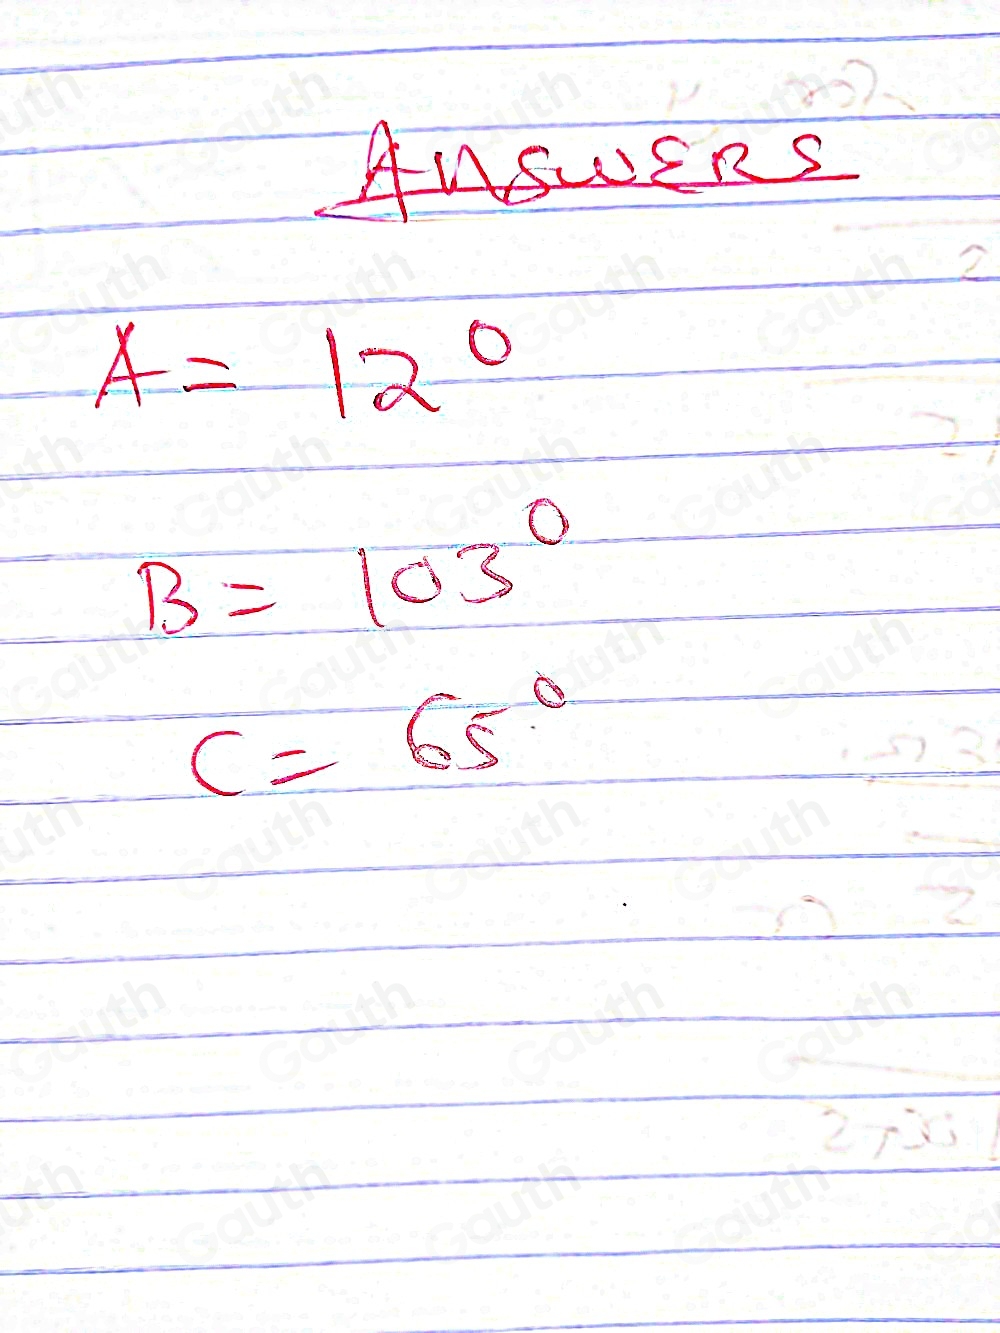 ANSWERS
A = 12°
B = 103°
C = 65°